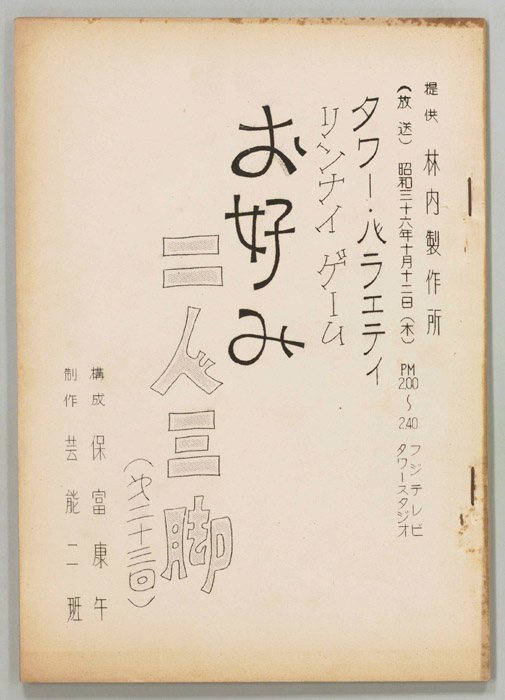 提供 林内製作所
(放送) 昭和三十六年十月十二日(木) PM 2.00～2.40 フジテレビ タワースタジオ
タワー・バラエティ
リンナイゲーム
お好み
二人三脚
(才二十三回)
構成 保富康午
制作 芸能二班